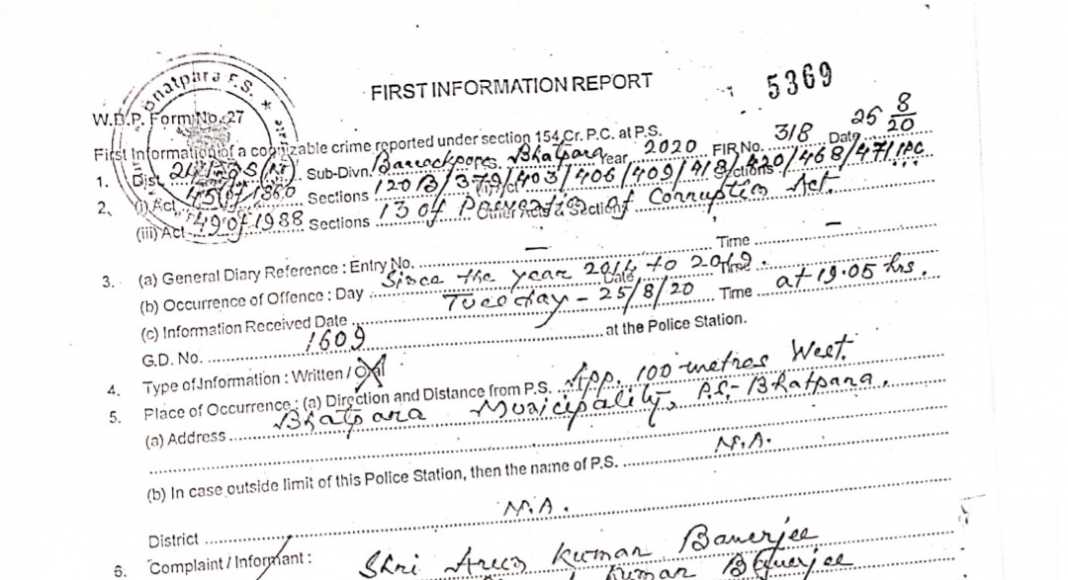 FIRST INFORMATION REPORT
5369
Bhatpara P.S. *
W.B.P. Form No. 27
First Information of a cognizable crime reported under section 154 Cr. P.C. at P.S.
1. Dist. 24 PGS (N). Sub-Divn. Barrackpore, Bhatpara Year 2020 FIR No. 318 Date 25 8/20
2. (i) Act 45 of 1860 Sections 120B/379/403/406/409/418/420/468/471 IPC
(iii) Act 49 of 1988 Sections 13 of Prevention of Corruption Act. Other Acts & Sections
3. (a) General Diary Reference : Entry No. — Time —
(b) Occurrence of Offence : Day Since the year Date to 2019. Time
(c) Information Received Date Tuesday - 25/8/20 Time at 19.05 hrs.
G.D. No. 1609 at the Police Station.
4. Type of Information : Written / Oral
5. Place of Occurrence : (a) Direction and Distance from P.S. App. 100 metres West.
(a) Address Bhatpara Municipality, P.S.- Bhatpara.
(b) In case outside limit of this Police Station, then the name of P.S. N.A.
District N.A.
6. Complaint / Informant : Shri Arun Kumar Banerjee
Kumar Banerjee